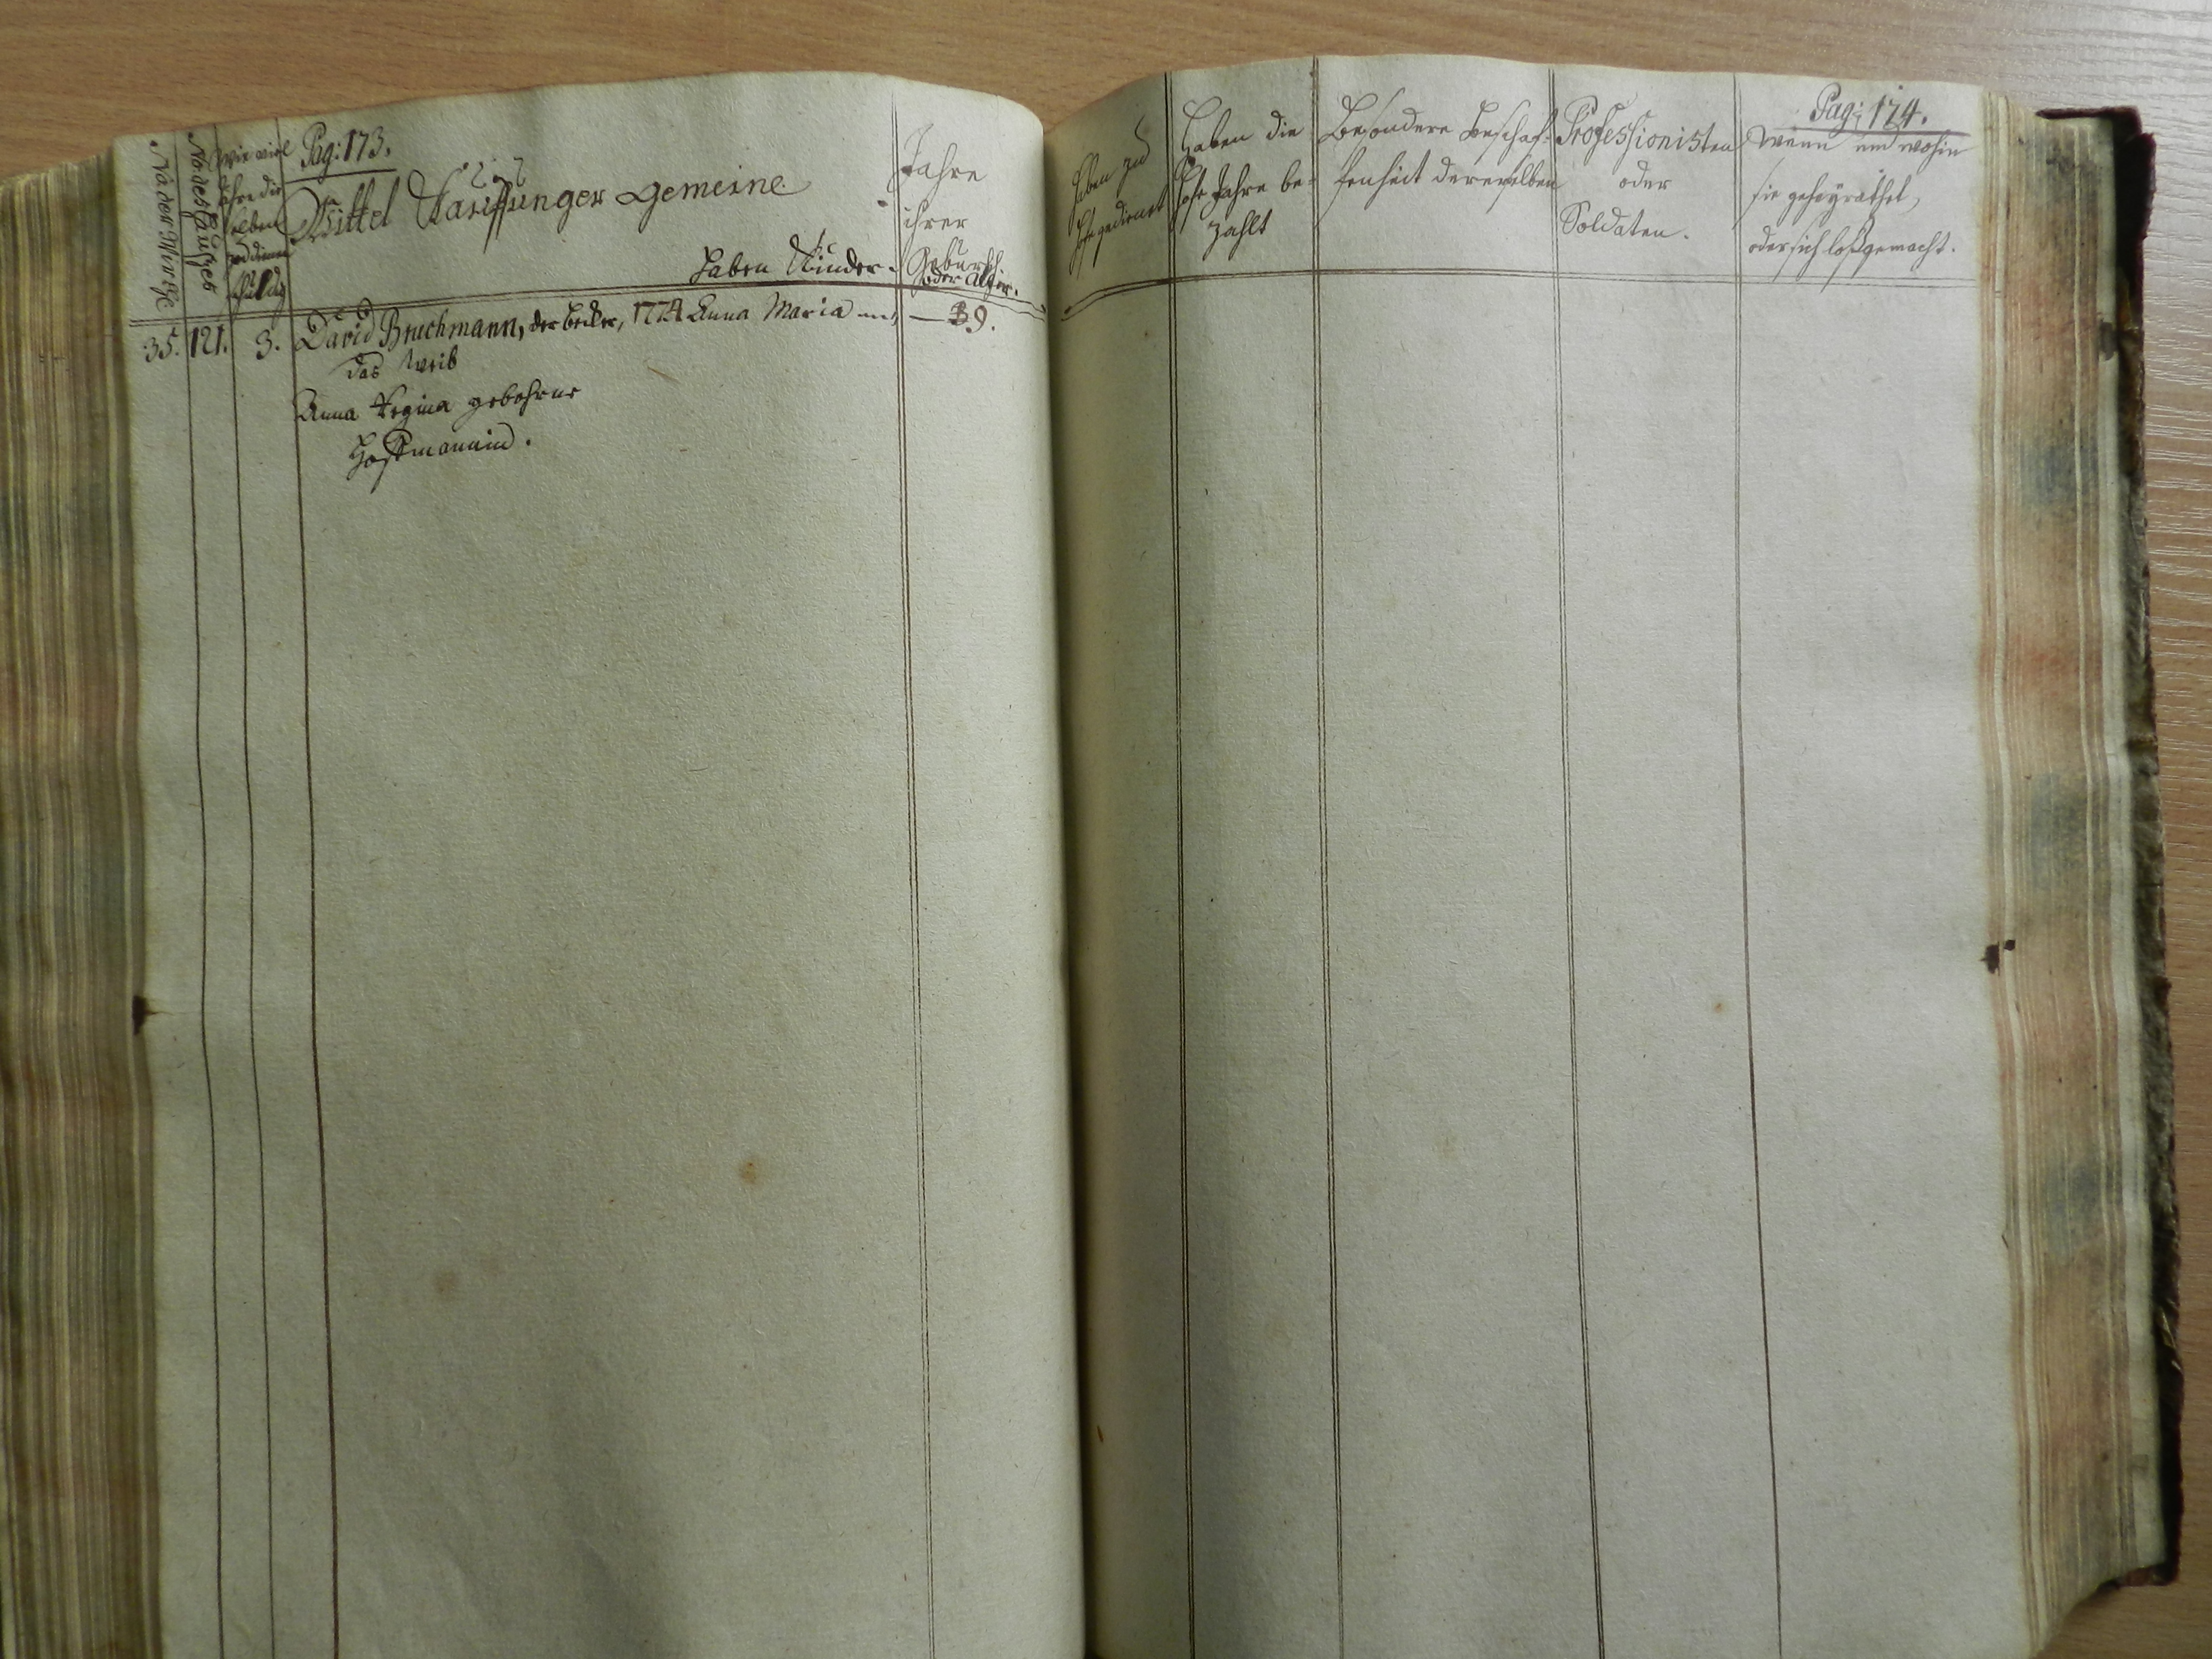 No der Wirthe
No des Hauses
Wie viel
Jahre die
selben
zu dienen
schuldig
Pag: 173.
Mittel Kauffunger Gemeine
Haben Kinder.
Jahre
ihrer
Geburth
oder Alter.
35. 121. 3. David Bruchmann, der Becker, 1774 Anna Maria 39.
das Weib
Anna Regina gebohrne
Hoffmannin.
Haben zu
Hofe gedienet
Haben die
Hofe Jahre be-
zahlt
Besondere Beschaf-
fenheit dererselben
Professionisten
oder
Soldaten.
Pag: 174.
Wenn und wohin
sie geheyrathet,
oder sich loßgemacht.